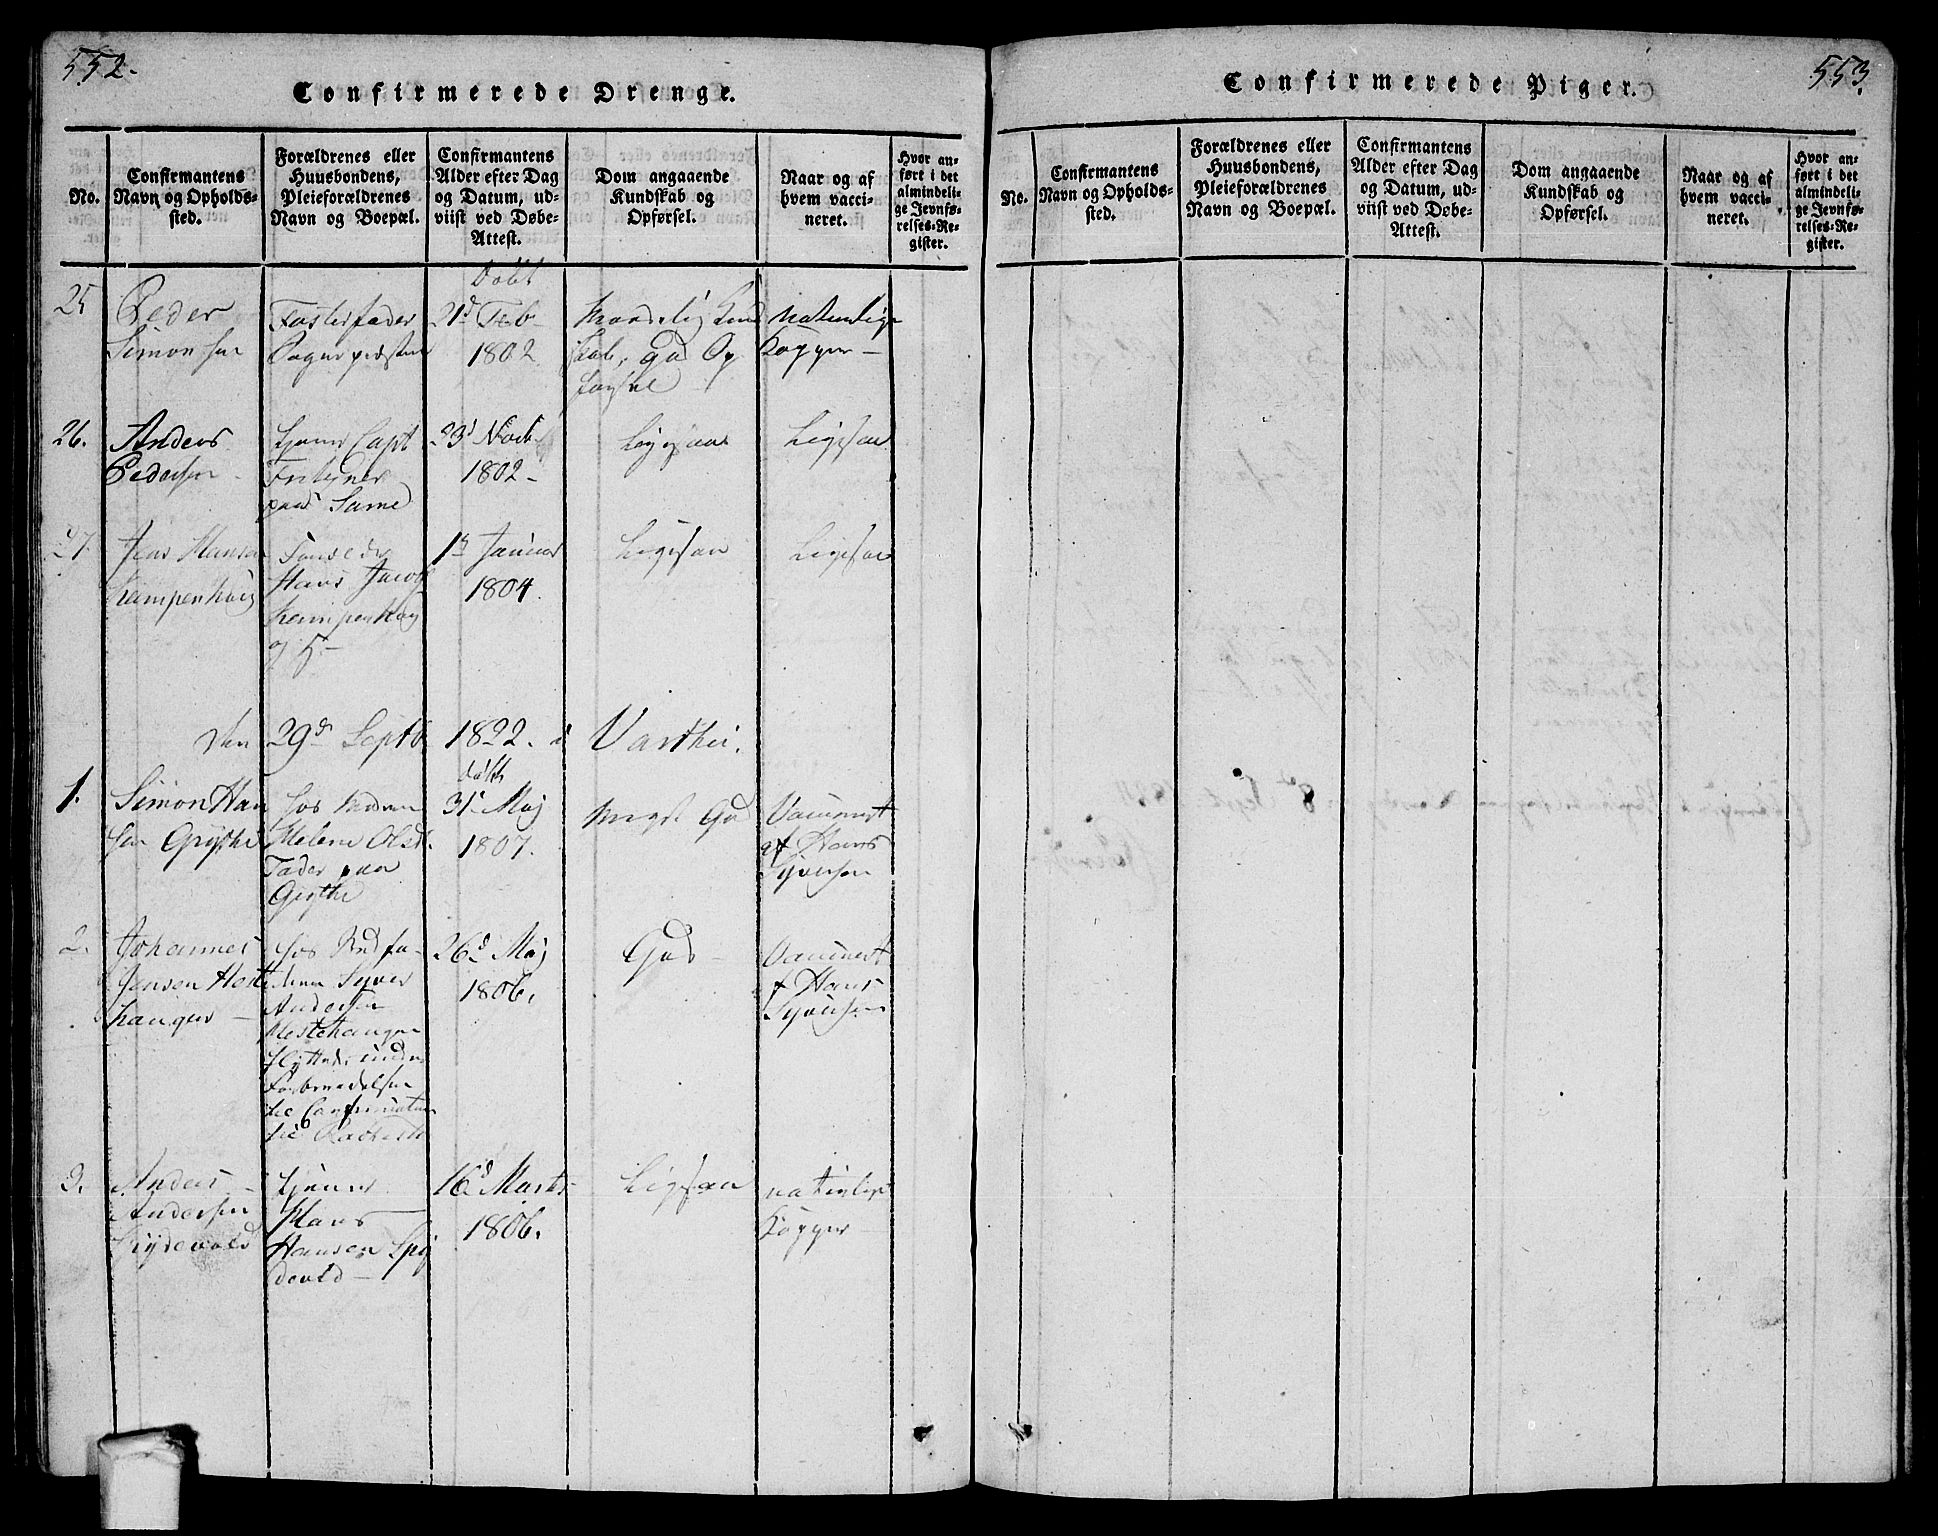 552.
Confirmerede Drenge.
No.
Confirmantens
Navn og Opholds-
sted.
Forældrenes eller
Huusbondens,
Pleieforældrenes
Navn og Boepæl.
Confirmantens
Alder efter Dag
og Datum, ud-
viist ved Døbe-
Attest.
Dom angaaende
Kundskab og
Opførsel.
Naar og af
hvem vacci-
neret.
Hvor an-
ført i det
almindeli-
ge Jevnfø-
relses-Re-
gister.
25
Peder
Simonsen
Fosterfader
Sognepræsten
Døbt
21d Feb
1802
maadelig Kund
skab, god Op
førsel
naturlige
Kopper
26.
Anders
Pedersen
tjener Capt
paa Same
23d Novb
1802
Ligesaa
Ligesaa
27.
Jens Hansen
Kampenhaug
Hans Jacob
Kampenhaug
1ste Januar
1804.
Ligesaa
Ligesaa
den 29d Septb 1822. i Varthei.
1.
Simon Han
sen Grythe
hos Moderen
Helene Olsd.
Fader paa
Grythe
døbt
31d Maj
1807.
meget God
Vaccineret
af Hans
Syversen
2.
Johannes
Jensen Heste
haugen
hos Stedfa-
deren Syver
Andersen
Hestehaugen
flyttede under
Forberedelsen
til Confirmation
til
26d Maj
1806.
God
Vaccineret
af Hans
Syversen
3.
Anders
Andersen
Spydevold
tjener
Hans
Hansen Spy
devold
16d Marts
1806.
Ligesaa
naturlige
Kopper
553.
Confirmerede Piger.
No.
Confirmantens
Navn og Opholds-
sted.
Forældrenes eller
Huusbondens,
Pleieforældrenes
Navn og Boepæl.
Confirmantens
Alder efter Dag
og Datum, ud-
viist ved Døbe-
Attest.
Dom angaaende
Kundskab og
Opførsel.
Naar og af
hvem vacci-
neret.
Hvor an-
ført i det
almindeli-
ge Jevnfø-
relses-Re-
gister.